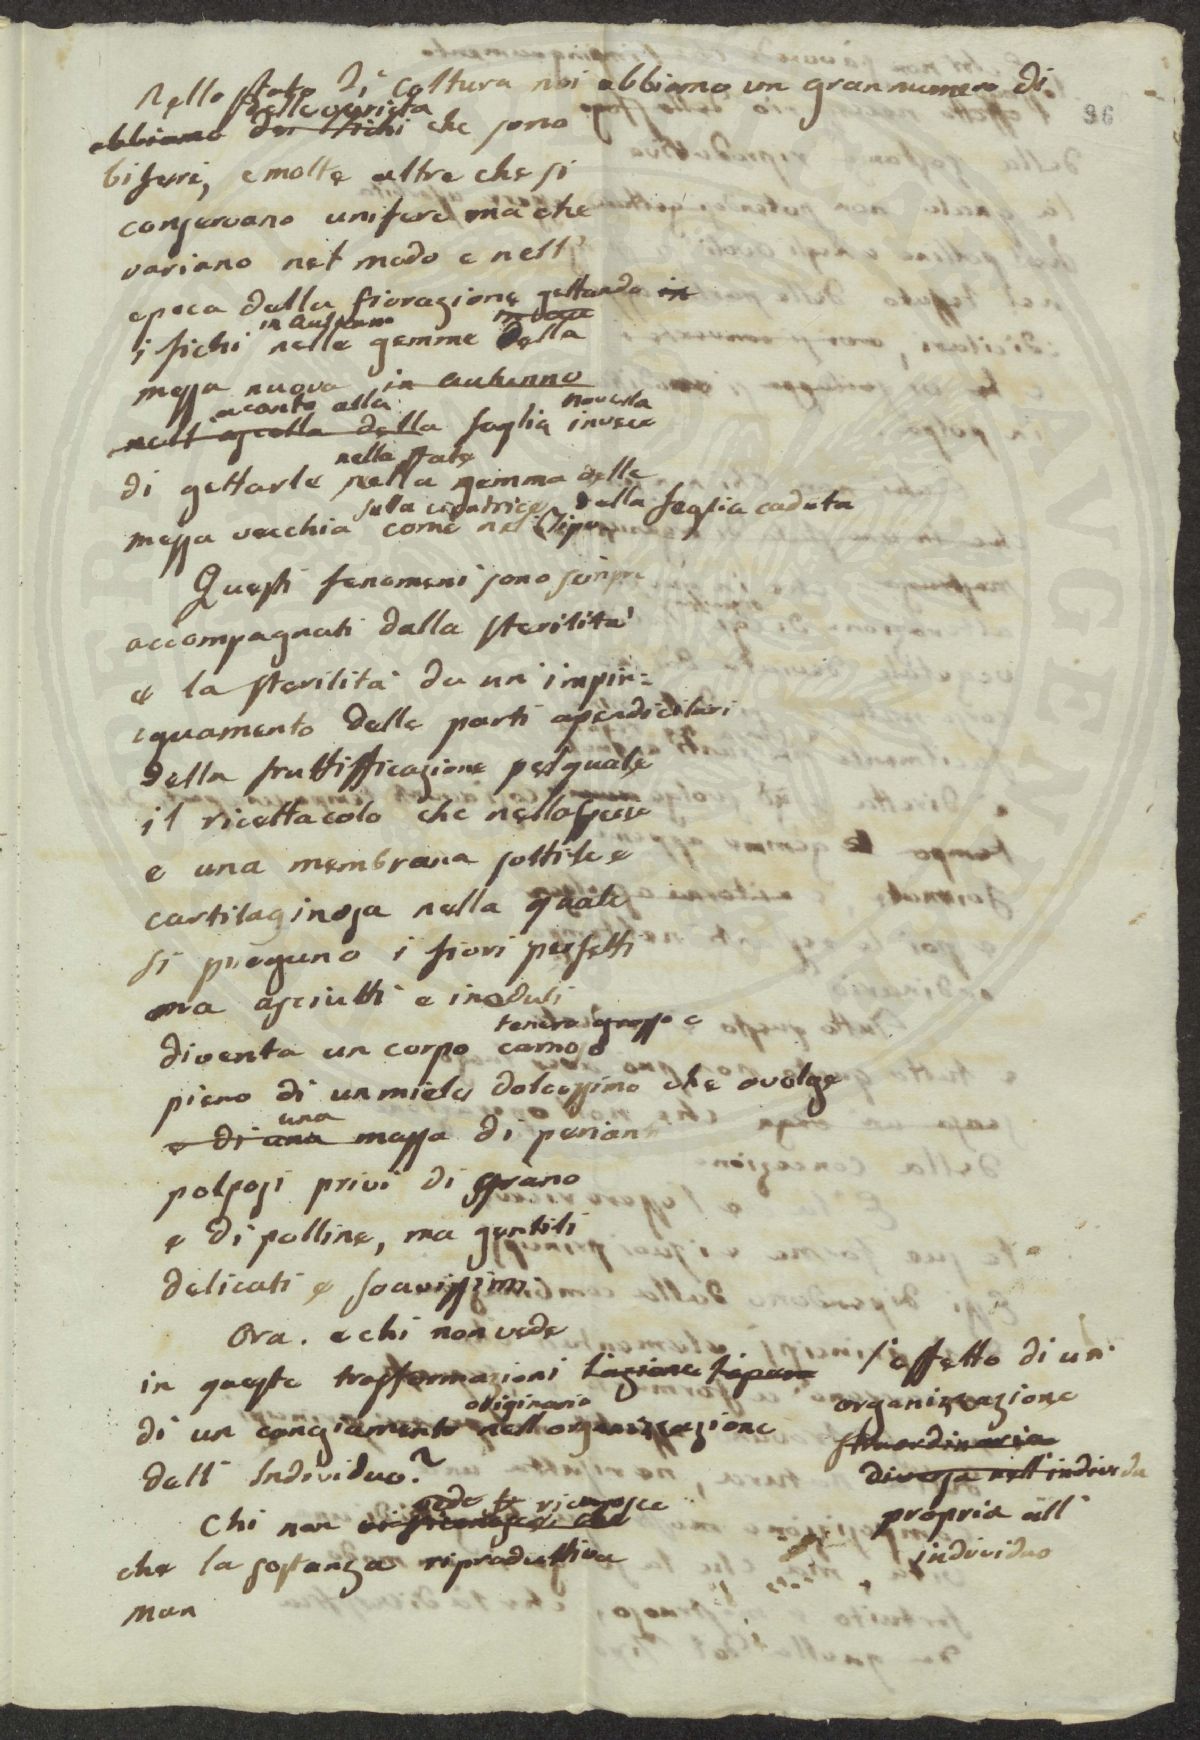 96
Nello stato di coltura noi abbiamo un gran numero di
delle varietà
abbiamo dei fichi che sono
biferi, e molte altre che si
conservano unifere ma che
variano nel modo e nell'
epoca della fiorazione gettando in
in autunno
i fichi nelle gemme della
messa nuova in autunno
acanto alla novella
nell'ascella della foglia invece
di gettarle nella gemma delle
nella state
messa vecchia come nel Tipo
sula cicatrice della foglia caduta
Questi fenomeni sono sempre
accompagnati dalla sterilità
e la sterilità da un impin=
guamento delle parti apendicilari
della fruttifficazione pel quale
il ricettacolo che nella specie
e una membrana sottile e
cartilaginosa nella quale
si pregano i fiori perfetti
ma asciutti e insoduli
tenero grosso e
diventa un corpo carnoso
pieno di un miele dolcessimo che avolge
una
e di una massa di periant
polposi privi di grano
e di polline, ma gentili
delicati e soavissimi.
Ora. e chi non vede
in queste trasformazioni l'azione l'opera l'effetto di un'
originario organizzazione
di un cangiamento nell'organizzazione straordinaria
dell' Individuo? diversa nell'individu
propria all'
individuo
vede te riconosce
Chi non vi riconosce che
che la sostanza riproduttiva
man